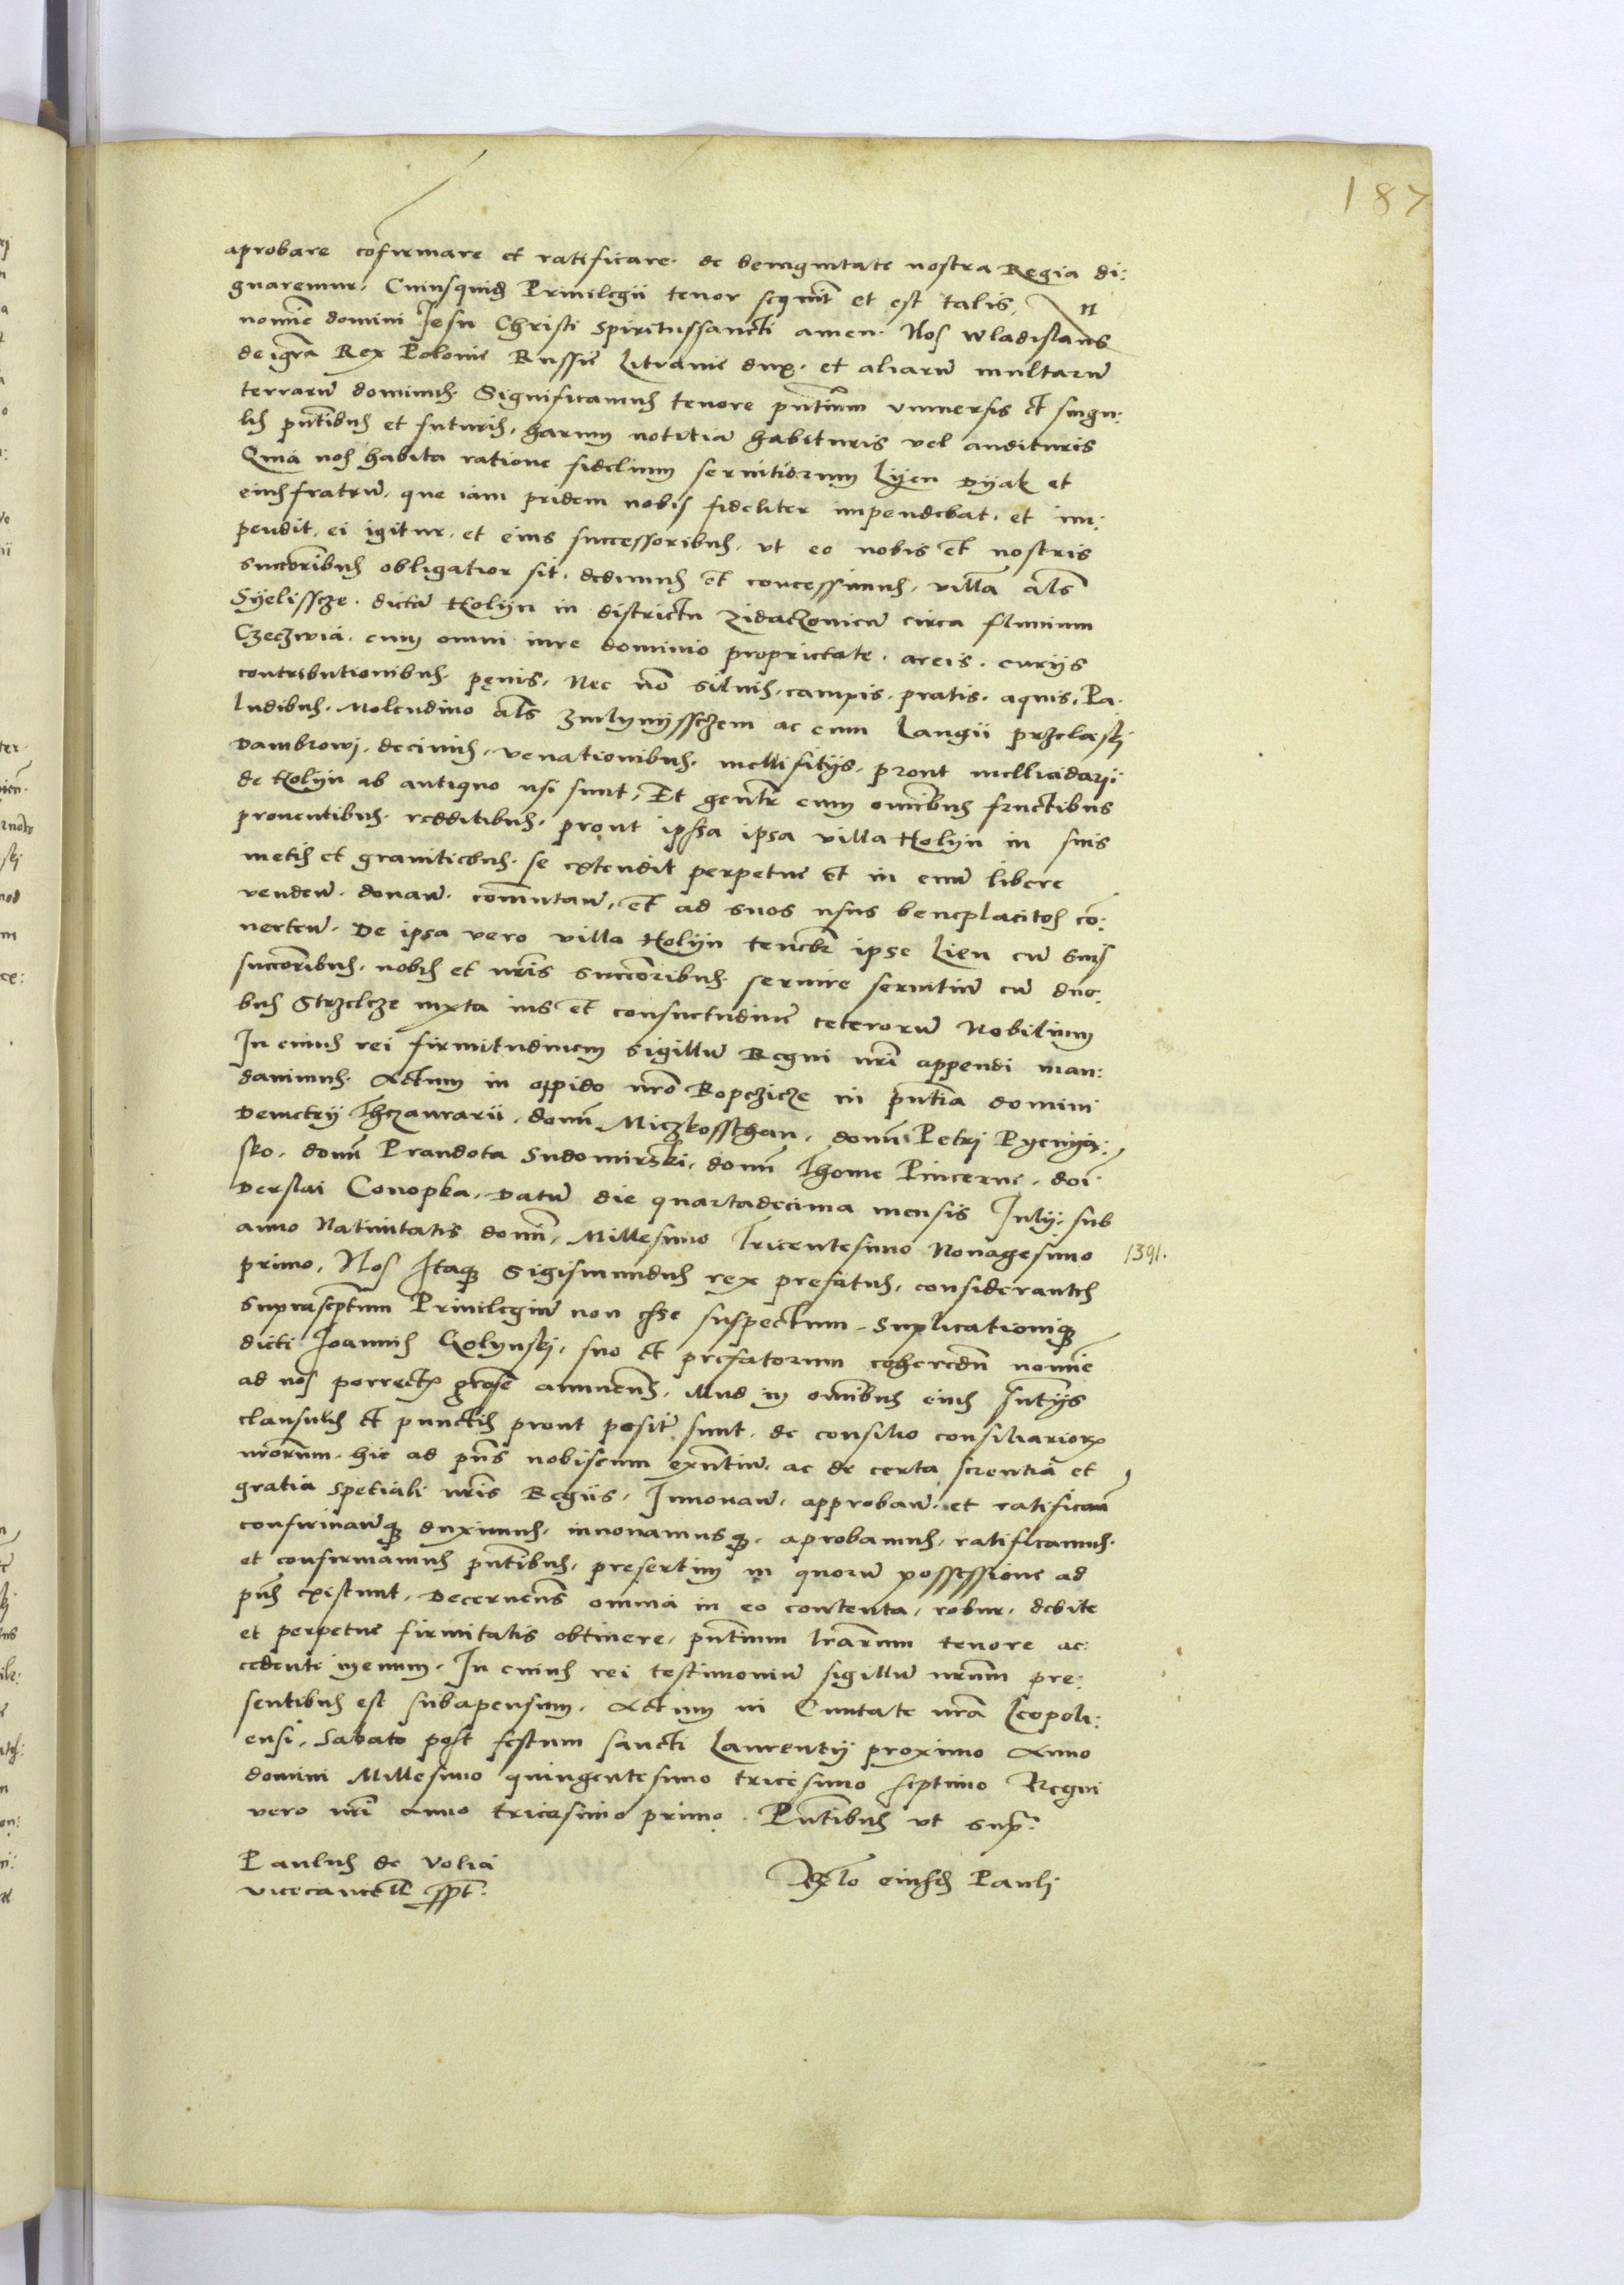 187
aprobare cōfirmare et ratificare. de benignitate nostra Regia di:
gnaremur. Cuiusquid Privilegii tenor sequit̄ et est talis, In
nomīe domini Jesu Christi Spiritussancti amen. Nos Wladislaus
dei grā Rex Polonie Russie Litvanie dux. et aliarū multarū
terrarū dominus. Significamus tenore pn̄tium vniuersis et singu:
lis pn̄tibus et futuris, harum notitiā habituris vel audituris
Quia nos habita ratione fidelium seruitiorum Lyen Dyak et
eius fratrū. que iam pridem nobis fideliter impendebat. et im:
pendit, ei igitur. et eius successoribus. vt eo nobis et nostris
succ̄oribus obligatior sit. dedimus et concessimus, villā al̄s
Syelisscze. dictā Holyn in districtu Zidaczouien̄ circa fluuium
Czeczwia. cum omni iure dominio proprietate. areis. curiys
contributionibus. penis. Nec nō siluis. campis. pratis. aquis. Pa.
ludibus. Molendino al̄s zmlynysschem ac cum Langii przelaski
Dambrowj. decimis. venationibus. mellifitiys. prout mellicidarii
de Holyn ab antiquo usi sunt, Et gen̄tr cum om̄ibus fructibus
prouentibus. redditibus. prout ipssa ipsa villa Holyn in suis
metis et graniticebus. se extendit perpetue et in euū libere
venden̄. donan̄. com̄utan̄, et ad suos usus beneplacitos cō:
uerten̄. De ipsa vero villa Holyn tenebr̄ ipse Lien cū suis
succ̄oribus. nobis et nr̄is succ̄oribus. seruire seruitiū cū duo:
bus Strzelcze iuxta ius et consuetudinē ceterorū Nobilium
In cuius rei firmitudinem sigillū Regni nr̄i appendi man:
dauimus. Actum in oppido nr̄o Ropczicze in pn̄tia domini
Demetrij Thezaurarii, domī Miczkosschan, domī Petrj Pyenyą:
sko. domī Prandota Sudomirski, domī Thome Pincerne, doī
Derslai Conopka. Datū die quartadecima mensis Julij. sub
anno Natiuitatis domī. Millesimo Tricentesimo Nonagesimo 1391.
primo, Nos Itaq3 Sigismundus rex prefatus, considerantes
suprascptum Privilegiū non esse suspectum. Suplicationiq3
dicti Joannis Holynskj, suo et prefatorum coheredū nomīe
ad nos porrectę gr̄ose annuen̄. illud in om̄ibus eius sn̄tiys
clausulis et punctis prout posit̄ sunt. de consilio consiliariorꝝ
nr̄orum. hic ad pn̄s nobiscum exn̄tiū. ac de certa scientia et
gratia spetiali nr̄is Regiis. Innouan̄. approban̄. et ratifican̄
confirmanq3 duximus. innouamusq3. aprobamus, ratificamus.
et confirmamus pn̄tibus, presertim in quorū possessione ad
pn̄s existunt, Decernen̄s omnia in eo contenta, robur. debite
et perpetue firmitatis obtinere, pn̄tium lr̄arum tenore ac:
cedente menium. In cuius rei testimoniū sigillū nr̄um pre:
sentibus est subapensum. Actum in Ciuitate nr̄a Leopoli:
ensi. Sabato post festum sancti Laurentij proximo Anno
domini Millesimo quingentesimo tricesimo septimo Regni
vero nr̄i anno tricesimo primo. Pn̄tibus vt supr̄.
Paulus de Volia
vicecancell̄ sspt̄.
Rl̄o eiusdē Pauli